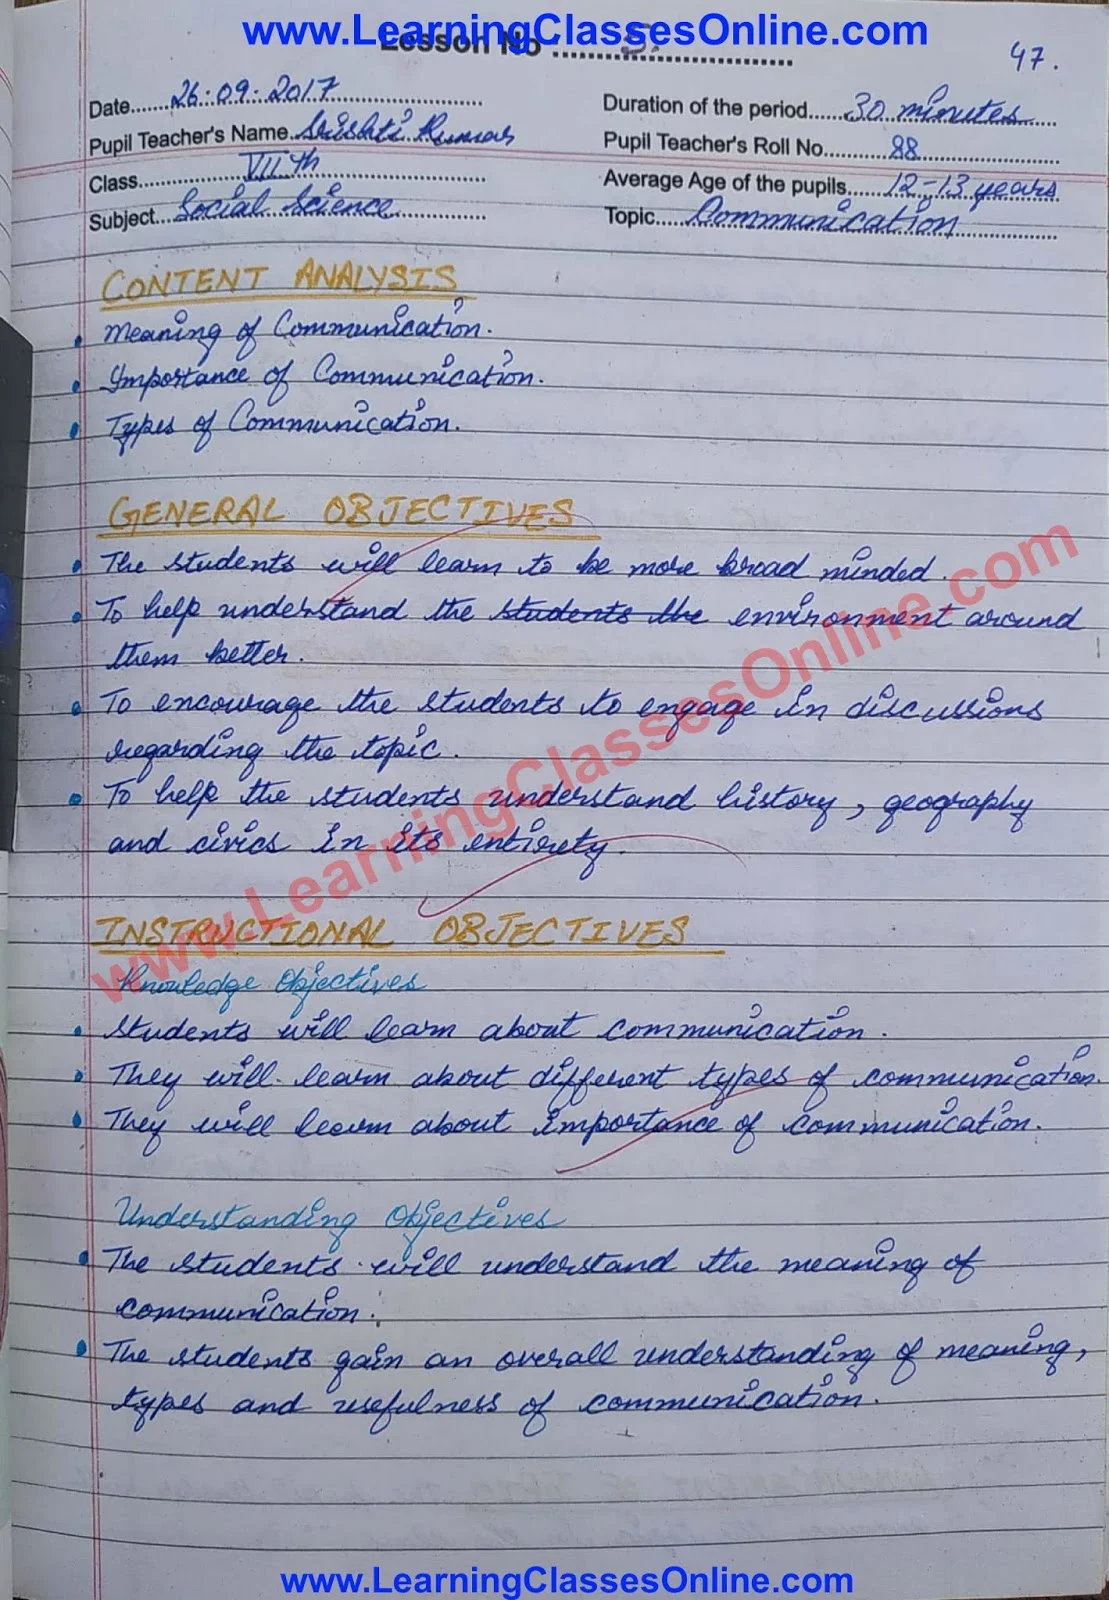 www.LearningClassesOnline.com
Lesson No ........5.
47.
Date......26.09.2017
Duration of the period......30 minutes
Pupil Teacher's Name Srishti Kumar
Pupil Teacher's Roll No..........88
Class..........VIIth
Average Age of the pupils......12-13 years
Subject...Social Science
Topic......Communication
CONTENT ANALYSIS
• Meaning of Communication.
• Importance of Communication.
• Types of Communication.
GENERAL OBJECTIVES
• The students will learn to be more broad minded.
• To help understand the students the environment around
them better.
• To encourage the students to engage in discussions
regarding the topic.
• To help the students understand history, geography
and civics in its entirety.
www.LearningClassesOnline.com
INSTRUCTIONAL OBJECTIVES
Knowledge Objectives
• Students will learn about communication.
• They will learn about different types of communication.
• They will learn about importance of communication.
Understanding Objectives
• The students will understand the meaning of
communication.
• The students gain an overall understanding of meaning,
types and usefulness of communication.
www.LearningClassesOnline.com